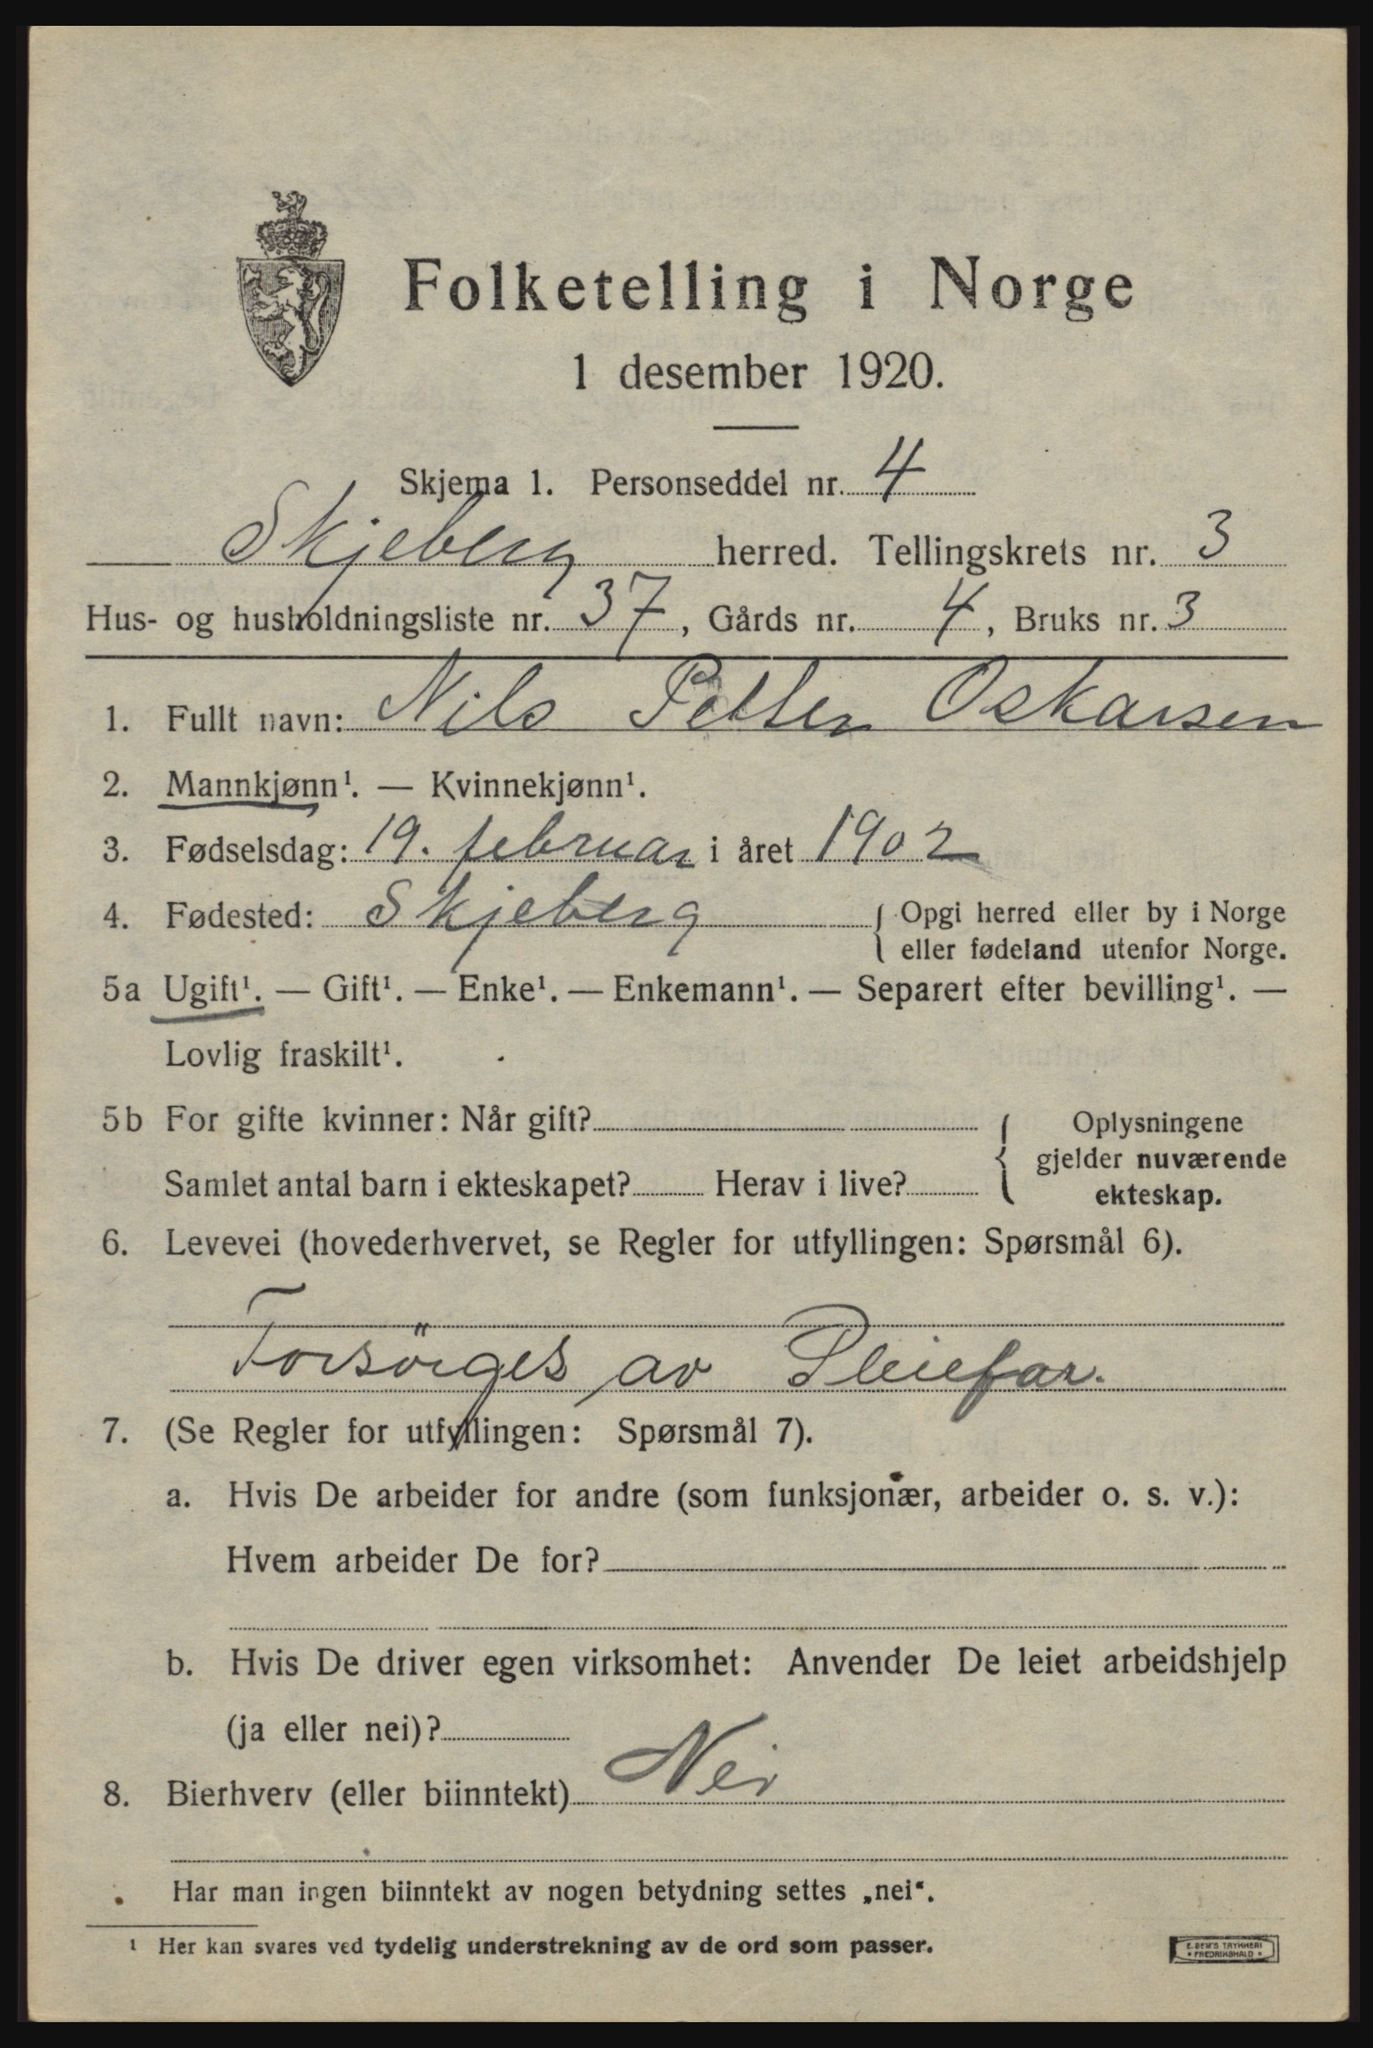 Folketelling i Norge
1 desember 1920.
Skjema 1. Personseddel nr. 4
Skjeberg herred. Tellingskrets nr. 3
Hus- og husholdningsliste nr. 37, Gårds nr. 4, Bruks nr. 3
1. Fullt navn: Nils Petter Oskarsen
2. Mannkjønn¹. — Kvinnekjønn¹.
3. Fødselsdag: 19. februar i året 1902
4. Fødested: Skjeberg { Opgi herred eller by i Norge
eller fødeland utenfor Norge.
5a Ugift¹. — Gift¹. — Enke¹. — Enkemann¹. — Separert efter bevilling¹. —
Lovlig fraskilt¹.
5b For gifte kvinner: Når gift? { Oplysningene
gjelder nuværende
Samlet antal barn i ekteskapet? Herav i live? ekteskap.
6. Levevei (hovederhvervet, se Regler for utfyllingen: Spørsmål 6).
Forsörges av Pleiefar.
7. (Se Regler for utfyllingen: Spørsmål 7).
a. Hvis De arbeider for andre (som funksjonær, arbeider o. s. v.):
Hvem arbeider De for?
b. Hvis De driver egen virksomhet: Anvender De leiet arbeidshjelp
(ja eller nei)?
8. Bierhverv (eller biinntekt) Nei
Har man ingen biinntekt av nogen betydning settes „nei“.
¹ Her kan svares ved tydelig understrekning av de ord som passer.
E. SEM'S TRYKKERI
• FREDRIKSHALD •